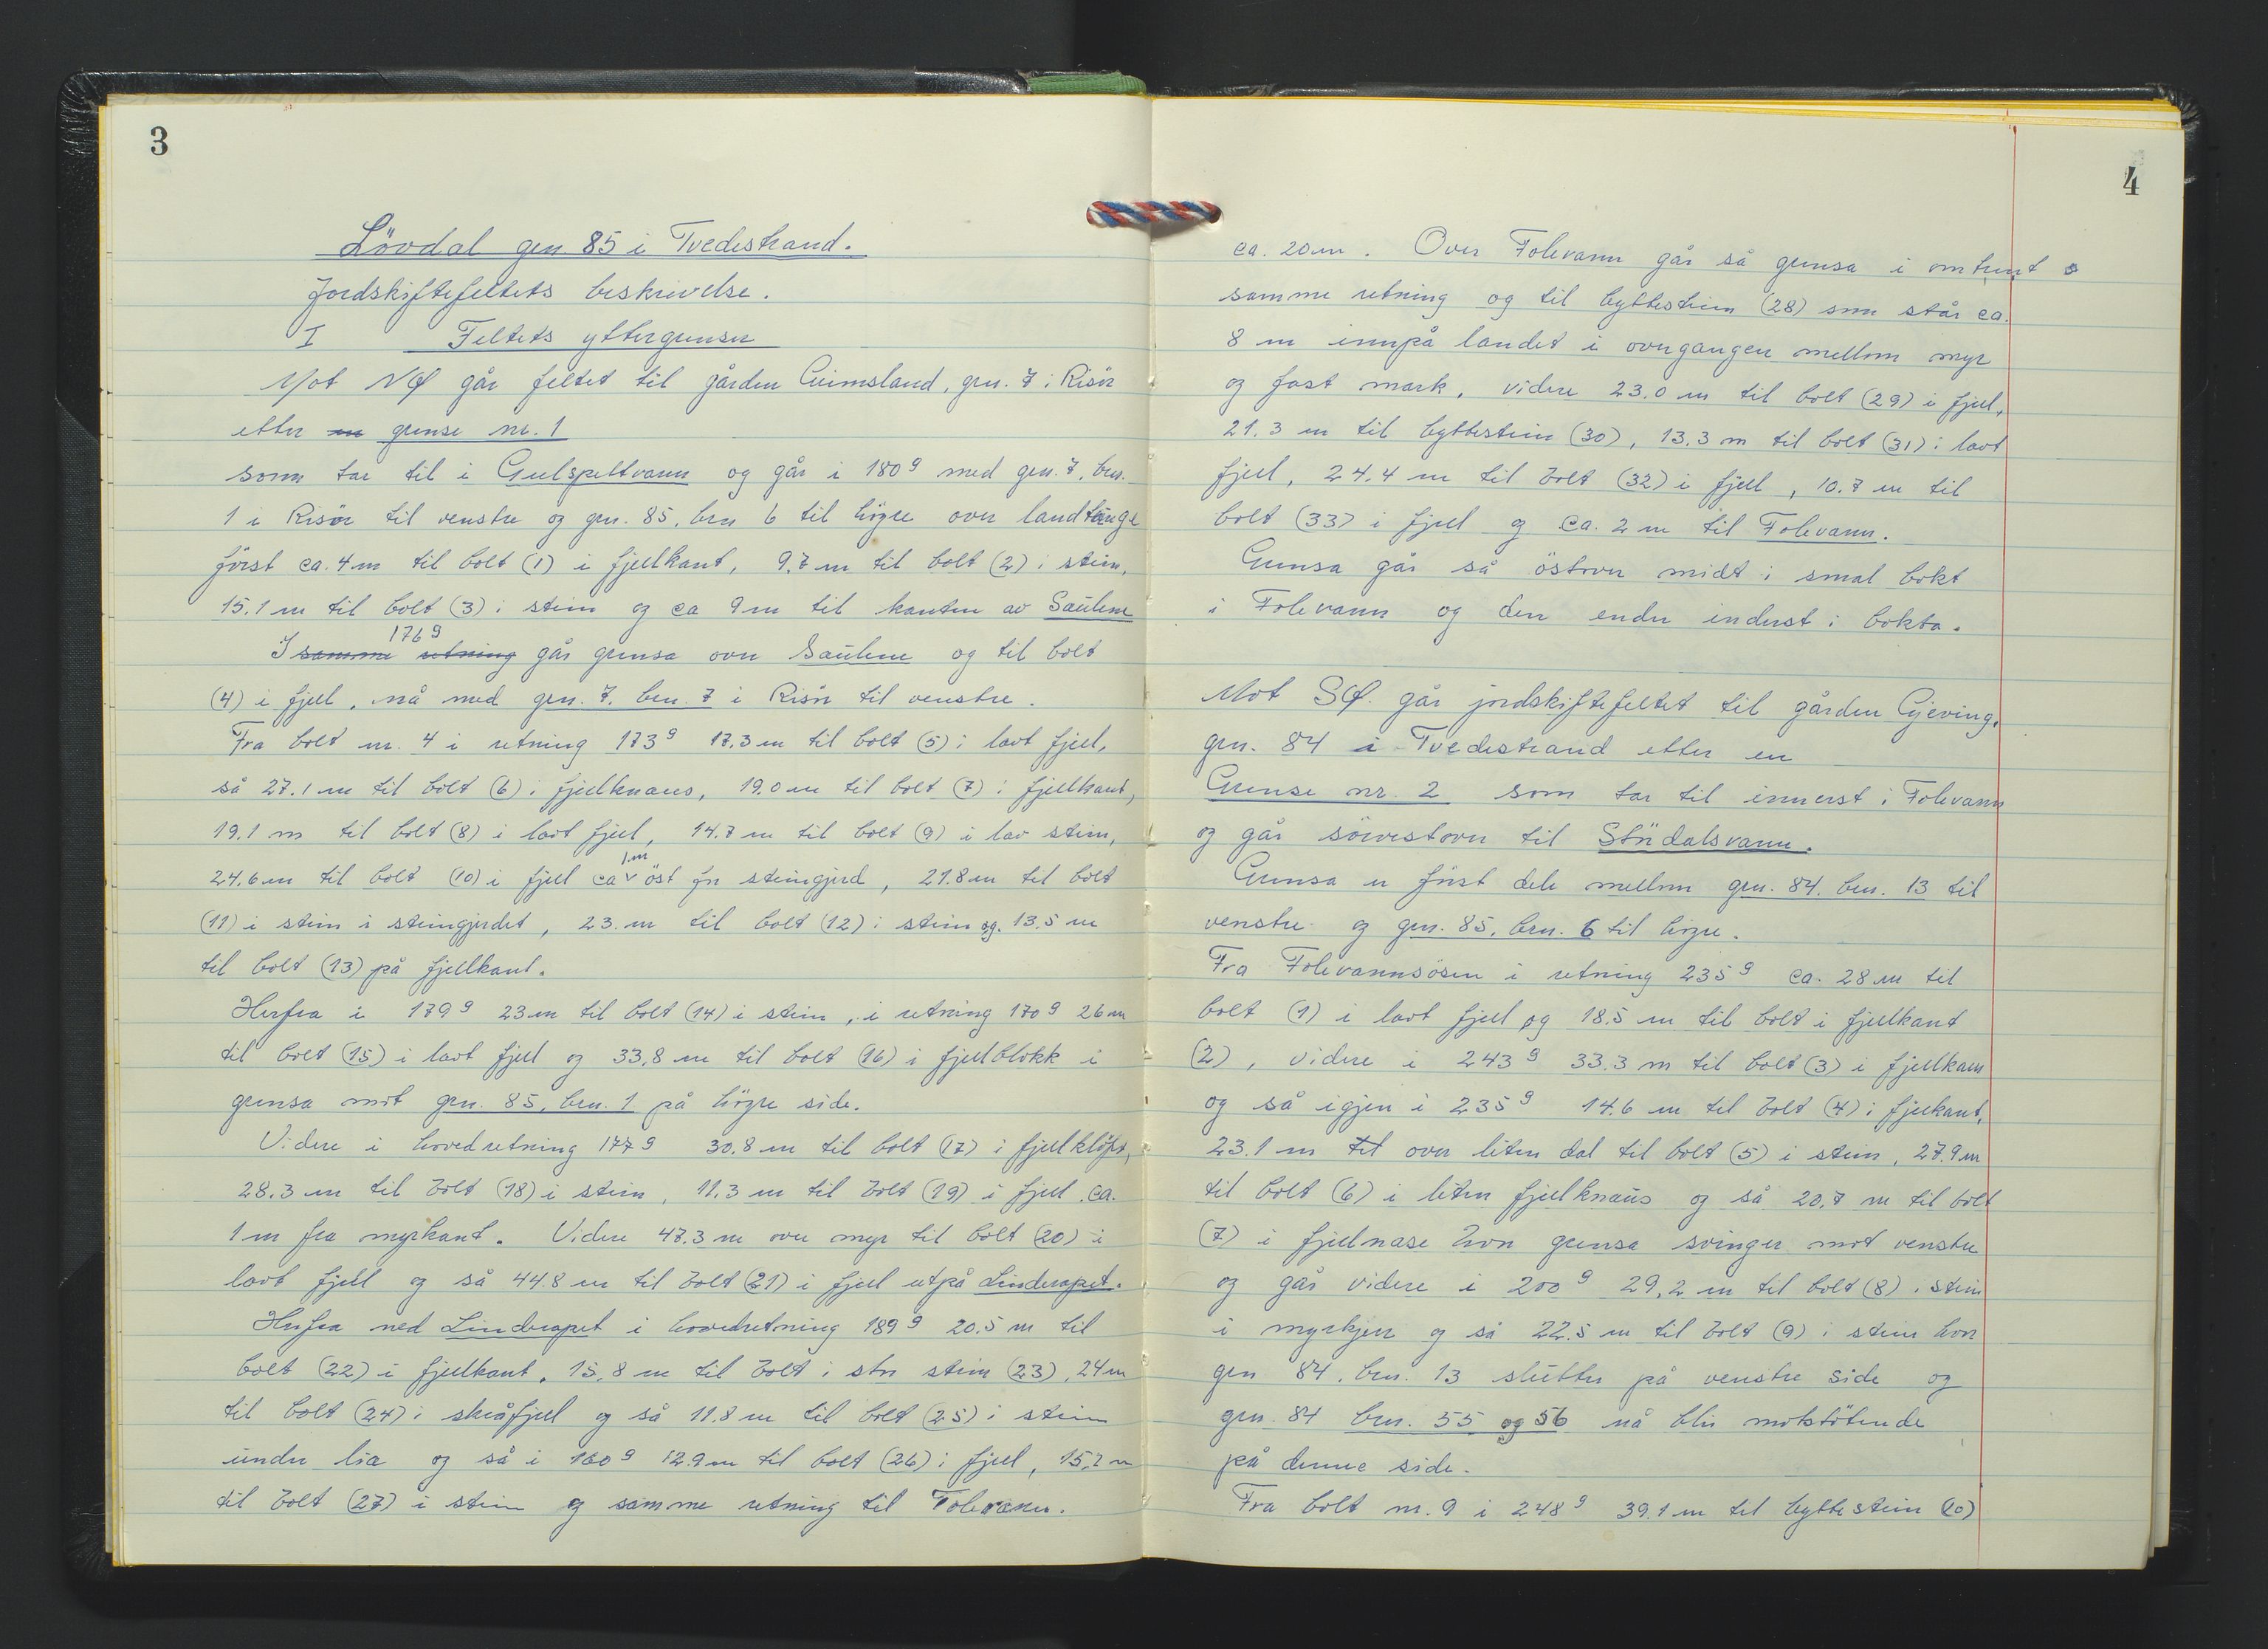 3
Lövdal gnr. 85 i Tvedestrand.
Jordskiftefeltets beskrivelse.
I Feltets yttergrenser
Mot NØ går feltet til gården Grimsland, gnr. 7 i Risör
etter en grense nr. 1
som tar til i Gulspeltvann og går i 180 g med gnr. 7, bnr.
1 i Risör til venstre og gnr. 85, bnr 6 til högre over landtunge
först ca. 4 m til bolt (1) i fjellkant, 9,7 m til bolt (2) i stein,
15.1 m til bolt (3) i stein og ca 9 m til kanten av Saulene
176 g
I samme retning går grensa over Saulene og til bolt
(4) i fjell, nå med gnr. 7, bnr. 7 i Risör til venstre.
Fra bolt nr. 4 i retning 173 g 17.3 m til bolt (5) i lavt fjell,
så 27.1 m til bolt (6) i fjellknaus, 19.0 m til bolt (7) i fjellkant,
19.1 m til bolt (8) i lavt fjell, 14.7 m til bolt (9) i lav stein,
1 m
24.6 m til bolt (10) i fjell ca öst for steingjerd, 21.8 m til bolt
(11) i stein i steingjerdet, 23. m til bolt (12) i stein og 13.5 m
til bolt (13) på fjellkant.
Herfra i 179 g 23 m til bolt (14) i stein, i retning 170 g 26 m
til bolt (15) i lavt fjell og 33,8 m til bolt (16) i fjellblokk i
grensa mot gnr. 85, bnr. 1 på högre side.
Videre i hovedretning 177 g 30.8 m til bolt (17) i fjellklöft,
28.3 m til bolt (18) i stein, 11.3 m til bolt (19) i fjell ca.
1 m fra myrkant. Videre 47.3 m over myr til bolt (20) i
lavt fjell og så 44.8 m til bolt (21) i fjell utpå Linderapet.
Herfra ned Linderapet i hovedretning 189 g 20.5 m til
bolt (22) i fjellkant, 15,8 m til bolt i stor stein (23), 24 m
til bolt (24) i skråfjell og så 11.8 m til bolt (25) i stein
under lia og så i 160 g 12.9 m til bolt (26) i fjell, 15,2 m
til bolt (27) i stein og samme retning til Folevann.
4
ca. 20 m. Over Folevann går så grensa i omtrent
samme retning og til byttestein (28) som står ca.
8 m innpå landet i overgangen mellom myr
og fast mark, videre 23.0 m til bolt (29) i fjell,
21.3 m til byttestein (30), 13.3 m til bolt (31) i lavt
fjell, 24.4 m til bolt (32) i fjell, 10.7 m til
bolt (33) i fjell og ca. 2 m til Folevann.
Grensa går så östover midt i smal bokt
i Folevann og den ender inderst i bokta.
Mot SØ. går jordskiftefeltet til gården Gjeving,
gnr. 84 i Tvedestrand etter en
Grense nr. 2 som tar til innerst i Folevann
og går sörvestover til Stördalsvann.
Grensa er först dele mellom gnr. 84, bnr. 13 til
venstre og gnr. 85, bnr. 6 til högre.
Fra Folevannsösen i retning 235 g ca. 28 m til
bolt (1) i lavt fjell og 18.5 m til bolt i fjellkant
(2), videre i 243 g 33.3 m til bolt (3) i fjellkam
og så igjen i 235 g 14.6 m til bolt (4) i fjelkant,
23.1 m til over liten dal til bolt (5) i stein, 27.9 m
til bolt (6) i liten fjellknaus og så 20,7 m til bolt
(7) i fjellnase hvor grensa svinger mot venstre
og går videre i 200 g 29,2 m til bolt (8) i stein
i myrkjerr og så 22.5 m til bolt (9) i stein hvor
gnr 84, bnr. 13 slutter på venstre side og
gnr. 84 bnr. 55 og 56 nå blir motstötende
på denne side.
Fra bolt nr. 9 i 248 g 39.1 m til byttestein (10)